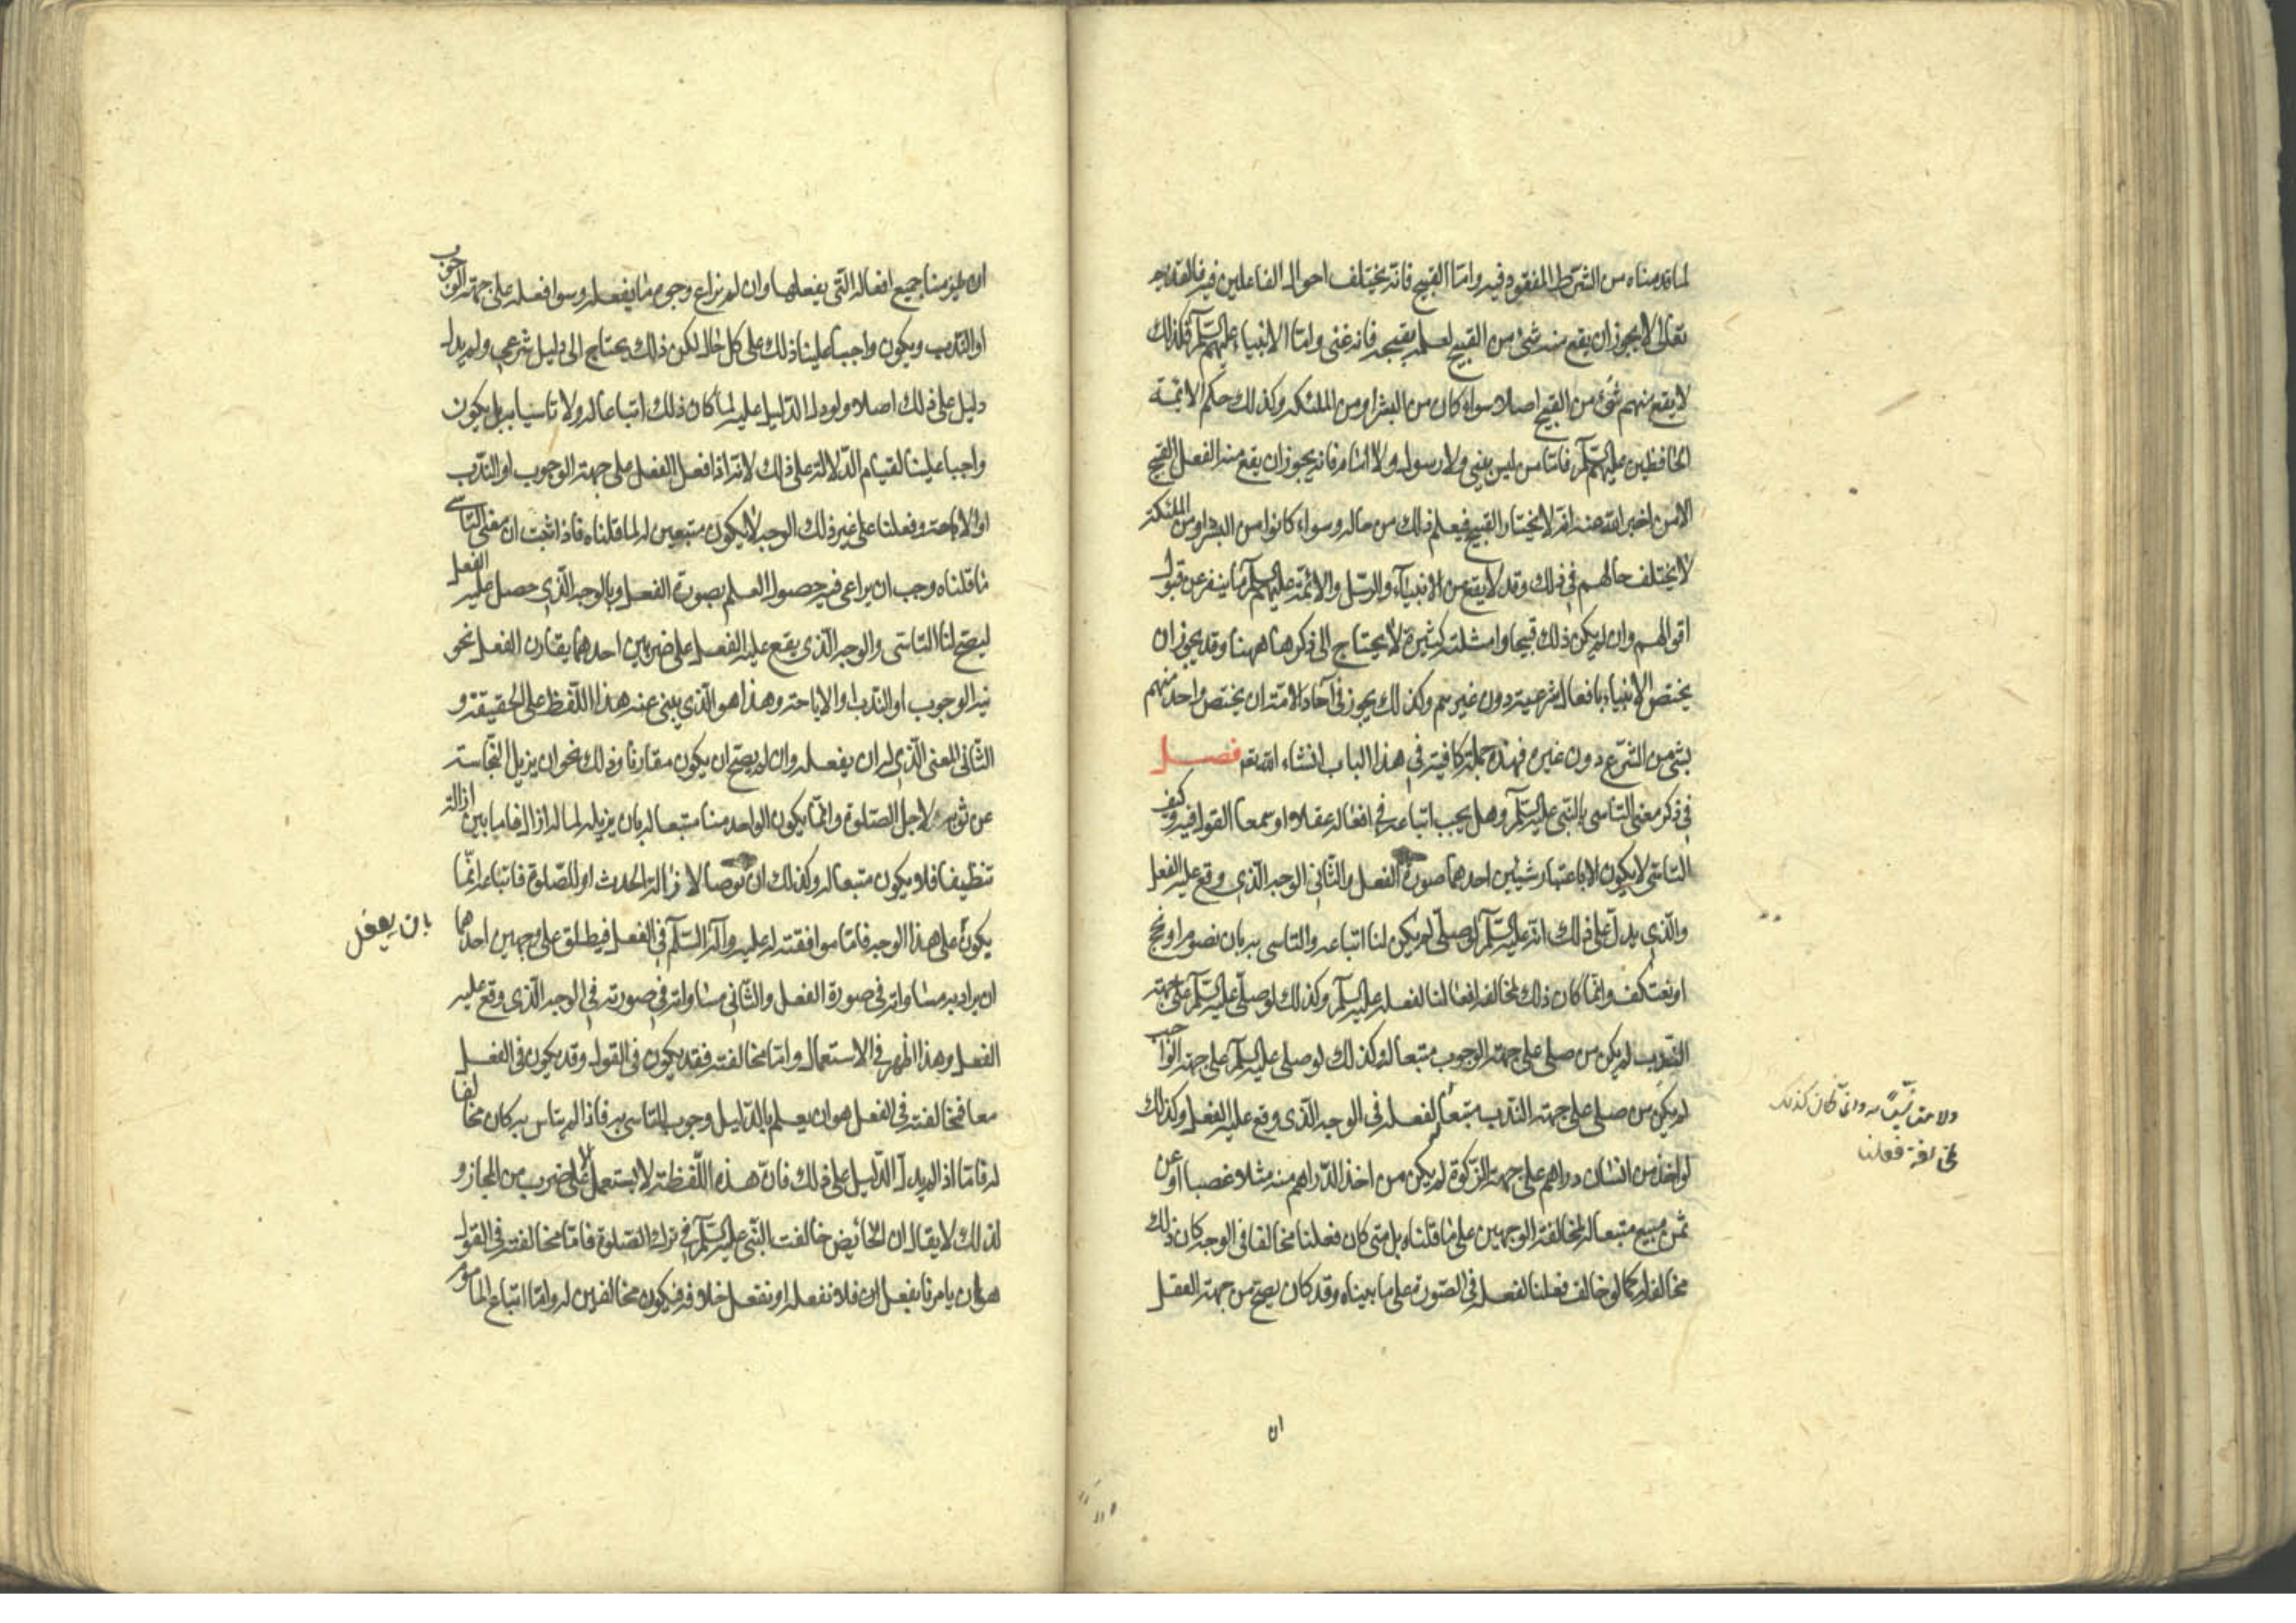 لما قدمناه من الشرط المفقود فيه واما القبيح فانه يختلف احوال الفاعلين فيه فالقديم
تعالى لا يجوز ان يقع منه شئ من القبيح لعلمه بقبحه فانه غنى واما الانبياء عليهم السلم فكذلك
لا يقع منهم شئ من القبيح اصلا سواء كان من البشر او من الملئكه وكذلك حكم الائمة
الحافظين عليهم السلم فاما من ليس بنبى ولا رسول ولا امام فانه يجوز ان يقع منه الفعل القبيح
الا من اخبر الله عنه انه لا يختار القبيح فيعلم ذلك من حاله وسواء كانوا من البشر او من الملئكة
لا يختلف حالهم فى ذلك وقد لا يقع من الانبياء والرسل والائمة عليهم السلم ما ينفر عن قبول
اقوالهم وان لم يكن ذلك قبيحا وامثلته كثيرة لا يحتاج الى ذكرها ههنا وقد يجوز ان
يختص الانبياء بافعال شرعية دون غيرهم وكذلك يجوز فى آحاد الامة ان يختص واحد منهم
بشئ من الشرع دون غيره فهذه جملة كافية فى هذا الباب انشاء الله تع فصل
فى ذكر معنى التاسى بالنبى عليه السلم وهل يجب اتباعه فى افعاله عقلا او سمعا القول فيه وكيف
التاسى لا يكون الا باعتبار شيئين احدهما صورة الفعل والثانى الوجه الذى وقع عليه الفعل
والذى يدل على ذلك انه عليه السلم لو صلى لم يكن لنا اتباعه والتاسى به بان نصوم او نحج
او نعتكف وانما كان ذلك لمخالفة افعالنا لفعله عليه السلم وكذلك لو صلى عليه السلم على جهة
الندب لم يكن من صلى على جهة الوجوب متبعا له كذلك لو صلى عليه السلم على جهة الواجب
لم يكن من صلى على جهة الندب متبعا لفعله فى الوجه الذى وقع عليه الفعل وكذلك
لو اخذ من انسان دراهم على جهة الزكوة لم يكن من اخذ الدراهم منه مثلا غصبا او عن
ثمن مبيع متبعا له لمخالفة الوجهين على ما قلناه بل متى كان فعلنا مخالفا فى الوجه كان ذلك
مخالفا له كما لو خالف فعلنا لفعله فى الصورة على ما بيناه وقد كان يصح من جهة العقل
ولا متاسيا به وانما كان كذلك
لمخالفة فعلنا
ان
ان يلزمنا جميع افعاله التى يفعلها وان لم نراع وجوه ما يفعله وسوا فعله على جهة الوجوب
او الندب ويكون واجبا علينا ذلك على كل حال لكن ذلك يحتاج الى دليل شرعى ولم يدل
دليل على ذلك اصلا ولو دل الدليل عليه لما كان ذلك اتباعا له ولا تاسيا به بل يكون
واجبا علينا لقيام الدلالة على ذلك لانه اذا فعل الفعل على جهة الوجوب او الندب
او الاباحة وفعلنا على غير ذلك الوجه لا يكون متبعين له لما قلناه فاذا ثبت ان معنى التاسى
ما قلناه وجب ان يراعى فيه حصول العلم بصورة الفعل وبالوجه الذى حصل عليه الفعل
ليصح لنا التاسى والوجه الذى يقع عليه الفعل على ضربين احدهما يقارن الفعل نحو
نية الوجوب او الندب او الاباحة وهذا هو الذى ينبئ عنه هذا اللفظ على الحقيقة و
الثانى المعنى الذى له ان يفعله وان لم يصح ان يكون مقارنا وذلك نحو ان يزيل النجاسة
عن ثوبه لاجل الصلوة وانما يكون الواحد منا متبعا له بان يزيله لما له ازال فاما بين ازالته
تنظيفا فلا يكون متبعا له وكذلك ان توضا لازالة الحدث او للصلوة فاتباعه انما
يكون على هذا الوجه فاما موافقته له عليه وآله السلم فى الفعل فيطلق على وجهين احدهما
بان يفعل
ان يراد به مساواته فى صورة الفعل والثانى مساواته فى صورته فى الوجه الذى وقع عليه
الفعل وهذا اظهر فى الاستعمال واما مخالفته فقد يكون فى القول وقد يكون فى الفعل
معا فمخالفته فى الفعل هو ان يعلم بالدليل وجوب التاسى به فاذا لم يتاس به كان مخالفا
له فاما اذا لم يدل الدليل على ذلك فان هذه اللفظة لا يستعمل الا على ضرب من المجاز و
لذلك لا يقال ان الحائض خالفت النبى عليه السلم فى ترك الصلوة فاما مخالفته فى القول
هو ان يامرنا بفعل ان فلا نفعله او نفعل خلافه فيكون مخالفين له واما اتباع المامور